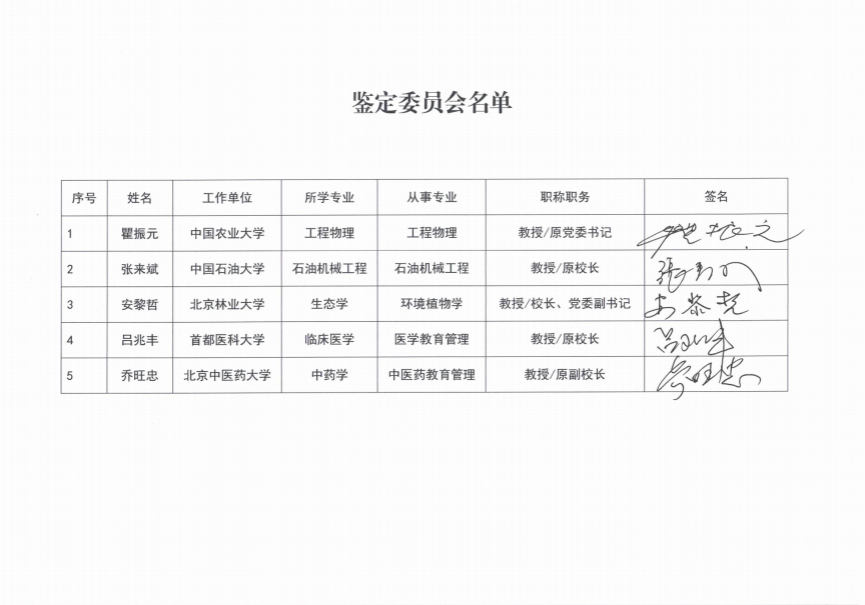 鉴定委员会名单
序号 姓名 工作单位 所学专业 从事专业 职称职务 签名
1 瞿振元 中国农业大学 工程物理 工程物理 教授/原党委书记 瞿振元
2 张来斌 中国石油大学 石油机械工程 石油机械工程 教授/原校长
3 安黎哲 北京林业大学 生态学 环境植物学 教授/校长、党委副书记 安黎哲
4 吕兆丰 首都医科大学 临床医学 医学教育管理 教授/原校长
5 乔旺忠 北京中医药大学 中药学 中医药教育管理 教授/原副校长 乔旺忠